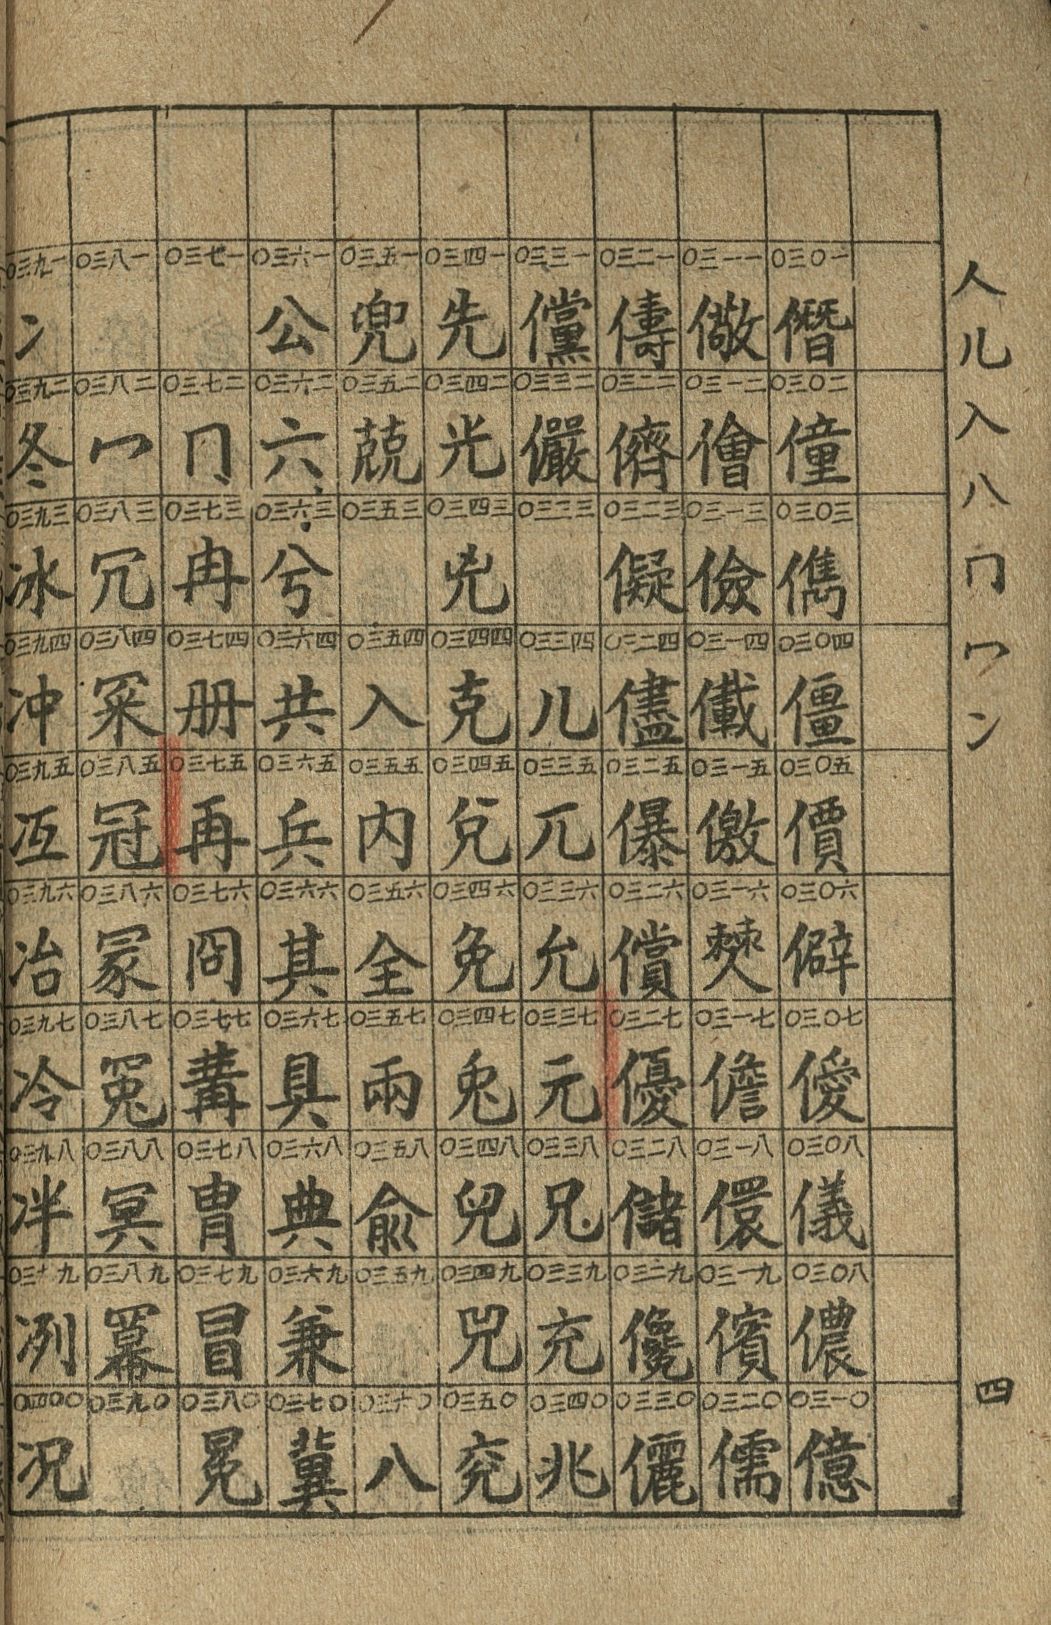 人儿入八冂冖冫
四
〇三〇一
僭
〇三〇二
僮
〇三〇三
儁
〇三〇四
僵
〇三〇五
價
〇三〇六
僻
〇三〇七
僾
〇三〇八
儀
〇三〇八
儂
〇三一〇
億
〇三一一
儆
〇三一二
儈
〇三一三
儉
〇三一四
儎
〇三一五
儌
〇三一六
僰
〇三一七
儋
〇三一八
儇
〇三一九
儐
〇三二〇
儒
〇三二一
儔
〇三二二
儕
〇三二三
儗
〇三二四
儘
〇三二五
儤
〇三二六
償
〇三二七
優
〇三二八
儲
〇三二九
儳
〇三三〇
儷
〇三三一
儻
〇三三二
儼
〇三三三
〇三三四
儿
〇三三五
兀
〇三三六
允
〇三三七
元
〇三三八
兄
〇三三九
充
〇三四〇
兆
〇三四一
先
〇三四二
光
〇三四三
兇
〇三四四
克
〇三四五
兌
〇三四六
免
〇三四七
兔
〇三四八
兒
〇三四九
兕
〇三五〇
兗
〇三五一
兜
〇三五二
兢
〇三五三
〇三五四
入
〇三五五
內
〇三五六
全
〇三五七
兩
〇三五八
兪
〇三五九
〇三六〇
八
〇三六一
公
〇三六二
六
〇三六三
兮
〇三六四
共
〇三六五
兵
〇三六六
其
〇三六七
具
〇三六八
典
〇三六九
兼
〇三七〇
冀
〇三七一
〇三七二
冂
〇三七三
冉
〇三七四
册
〇三七五
再
〇三七六
冏
〇三七七
冓
〇三七八
冑
〇三七九
冒
〇三八〇
冕
〇三八一
〇三八二
冖
〇三八三
冗
〇三八四
冞
〇三八五
冠
〇三八六
冢
〇三八七
冤
〇三八八
冥
〇三八九
冪
〇三九〇
〇三九一
冫
〇三九二
冬
〇三九三
冰
〇三九四
冲
〇三九五
冱
〇三九六
冶
〇三九七
冷
〇三九八
冸
〇三九九
冽
〇四〇〇
况